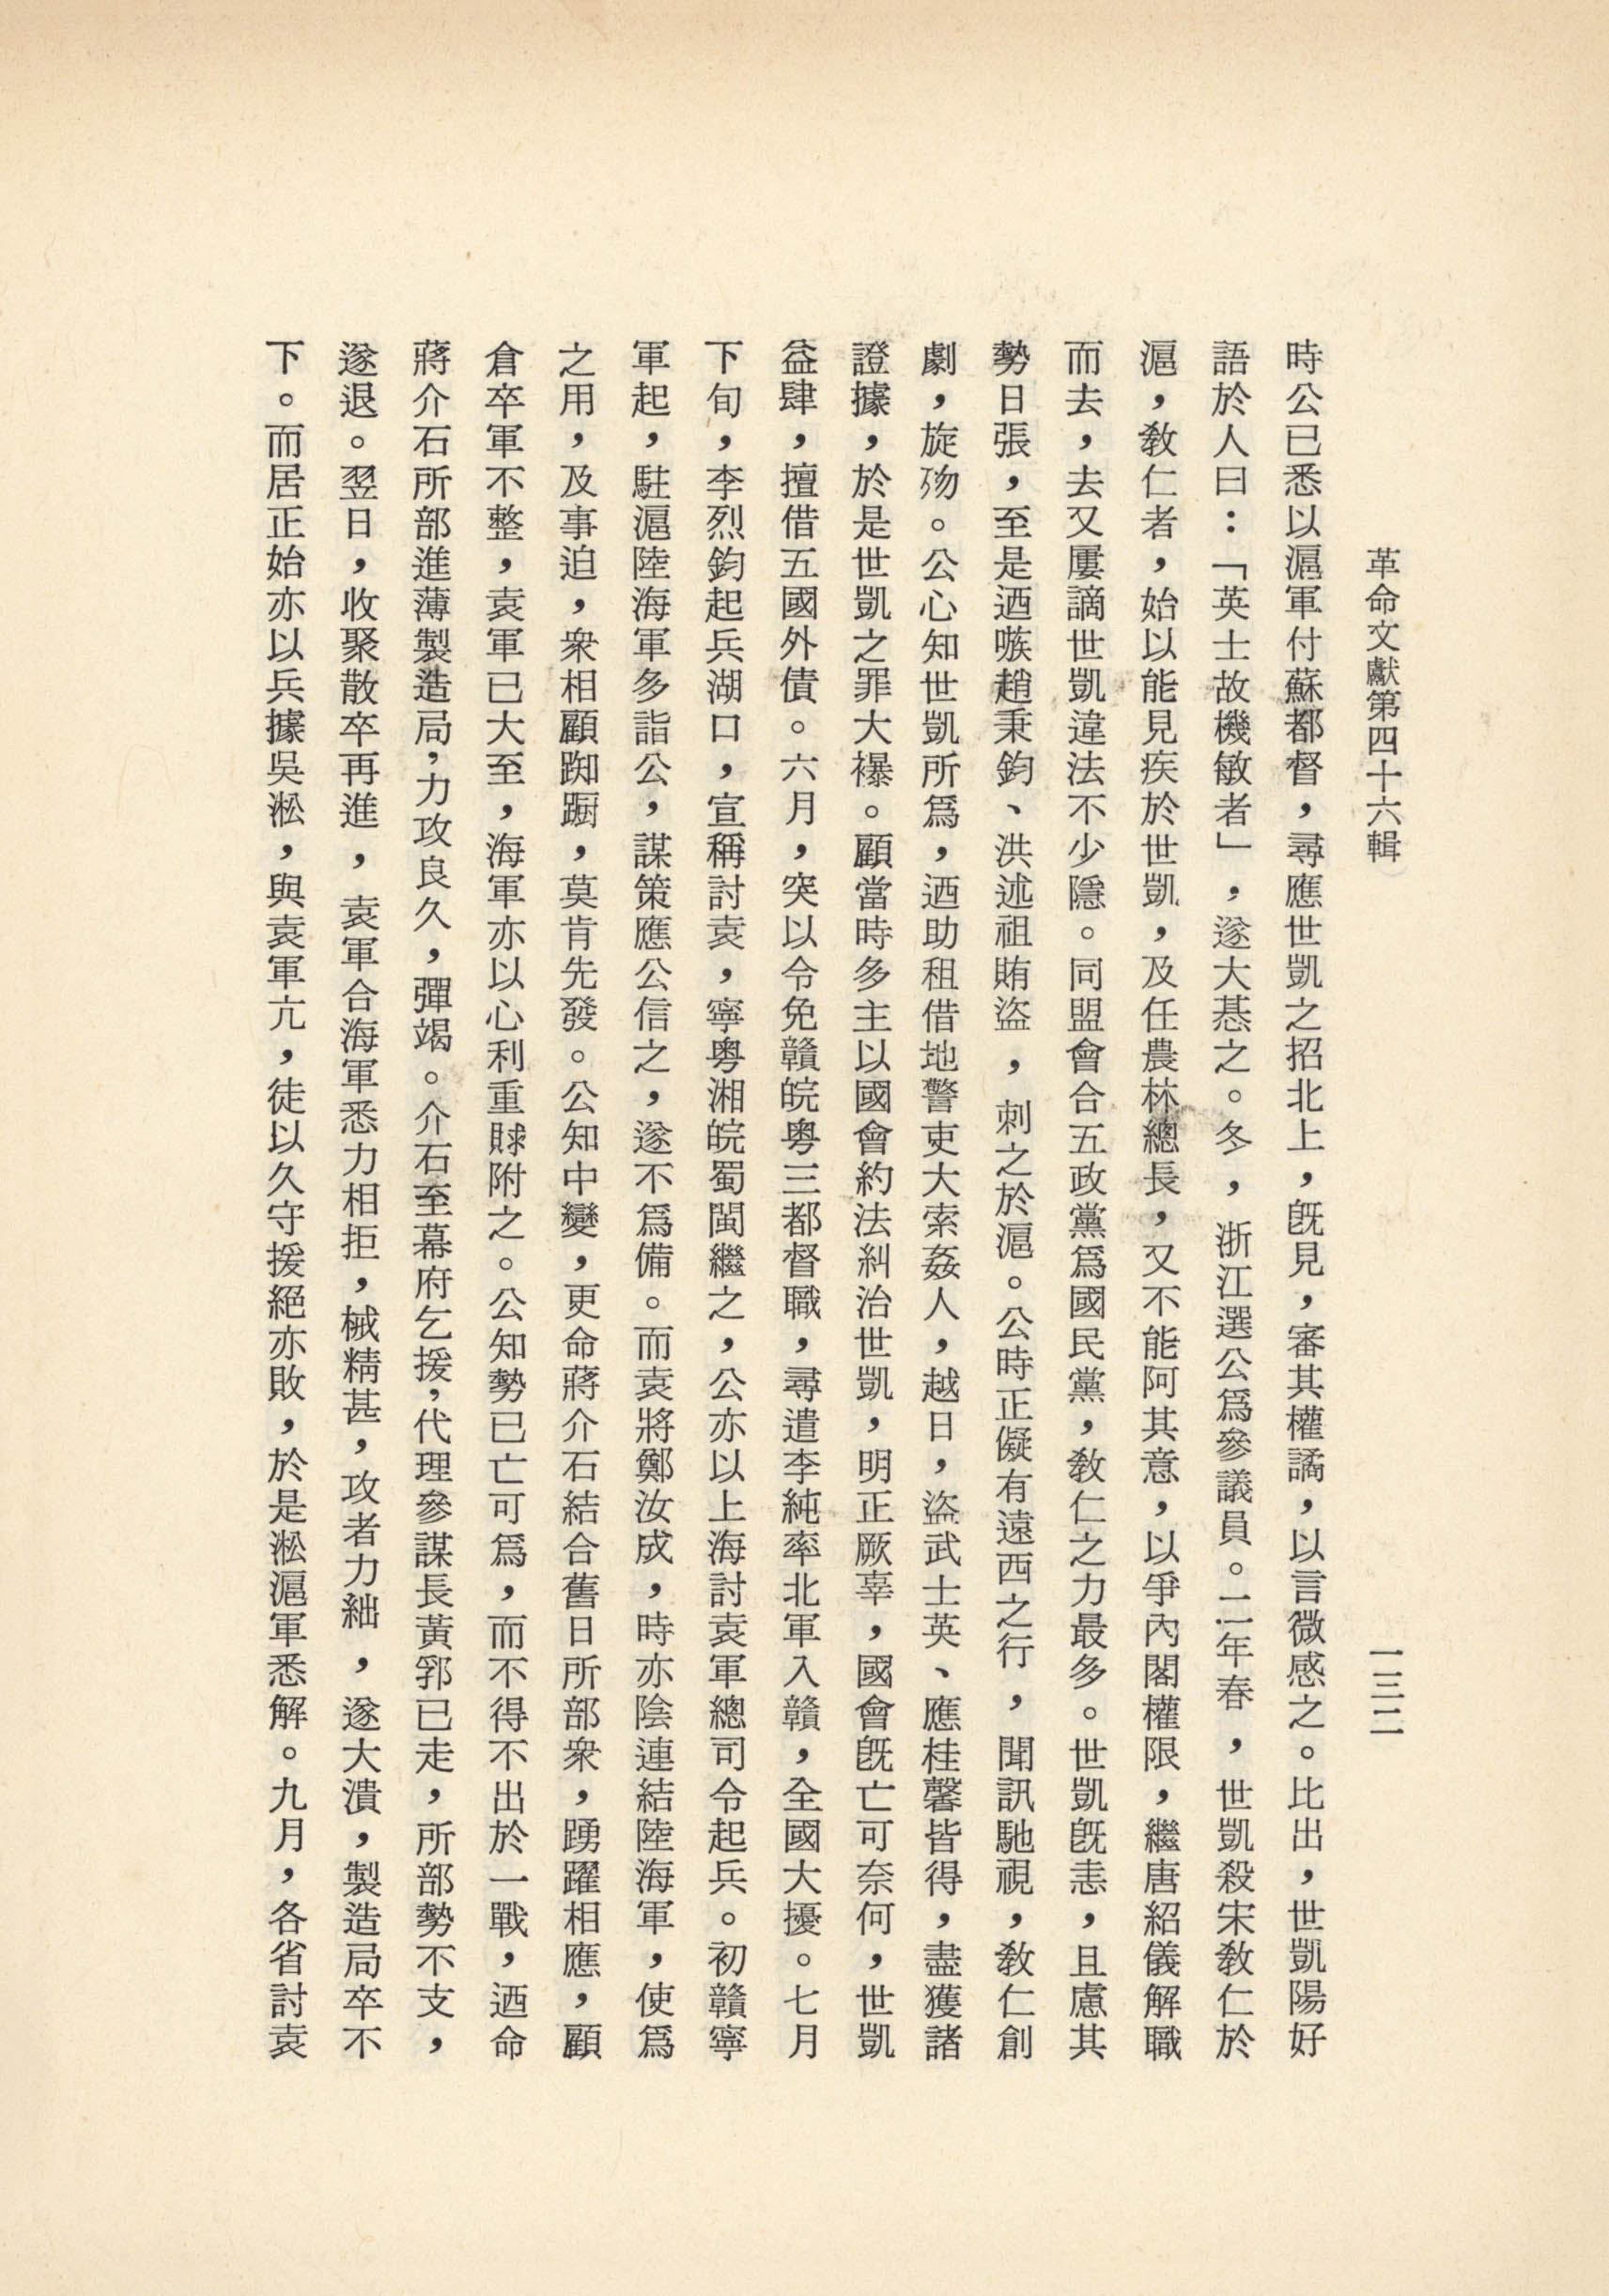 革命文獻第四十六輯
一三二
時公已悉以滬軍付蘇都督，尋應世凱之招北上，旣見，審其權譎，以言微感之。比出，世凱陽好
語於人曰：「英士故機敏者」，遂大惎之。冬，浙江選公爲參議員。二年春，世凱殺宋敎仁於
滬，敎仁者，始以能見疾於世凱，及任農林總長，又不能阿其意，以爭內閣權限，繼唐紹儀解職
而去，去又屢謫世凱違法不少隱。同盟會合五政黨爲國民黨，敎仁之力最多。世凱旣恚，且慮其
勢日張，至是迺嗾趙秉鈞、洪述祖賄盜，刺之於滬。公時正儗有遠西之行，聞訊馳視，敎仁創
劇，旋歾。公心知世凱所爲，迺助租借地警吏大索姦人，越日，盜武士英、應桂馨皆得，盡獲諸
證據，於是世凱之罪大襮。顧當時多主以國會約法糾治世凱，明正厥辜，國會旣亡可奈何，世凱
益肆，擅借五國外債。六月，突以令免贛皖粵三都督職，尋遣李純率北軍入贛，全國大擾。七月
下旬，李烈鈞起兵湖口，宣稱討袁，寧粵湘皖蜀閩繼之，公亦以上海討袁軍總司令起兵。初贛寧
軍起，駐滬陸海軍多詣公，謀策應公信之，遂不爲備。而袁將鄭汝成，時亦陰連結陸海軍，使爲
之用，及事迫，衆相顧踟躕，莫肯先發。公知中變，更命蔣介石結合舊日所部衆，踴躍相應，顧
倉卒軍不整，袁軍已大至，海軍亦以心利重賕附之。公知勢已亡可爲，而不得不出於一戰，迺命
蔣介石所部進薄製造局，力攻良久，彈竭。介石至幕府乞援，代理參謀長黃郛已走，所部勢不支，
遂退。翌日，收聚散卒再進，袁軍合海軍悉力相拒，械精甚，攻者力絀，遂大潰，製造局卒不
下。而居正始亦以兵據吳淞，與袁軍亢，徒以久守援絕亦敗，於是淞滬軍悉解。九月，各省討袁